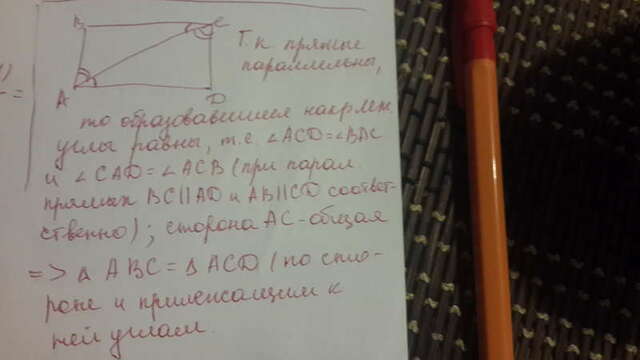 B C
A D
Т.к. прямые
параллельны,
то образовавшиеся накрлеж.
углы равны, т.е. ∠ACD=∠BAC
и ∠CAD=∠ACB (при парал.
прямых BC||AD и AB||CD соответ-
ственно); сторона AC-общая
=> △ABC=△ACD (по сто-
роне и прилежащим к
ней углам.